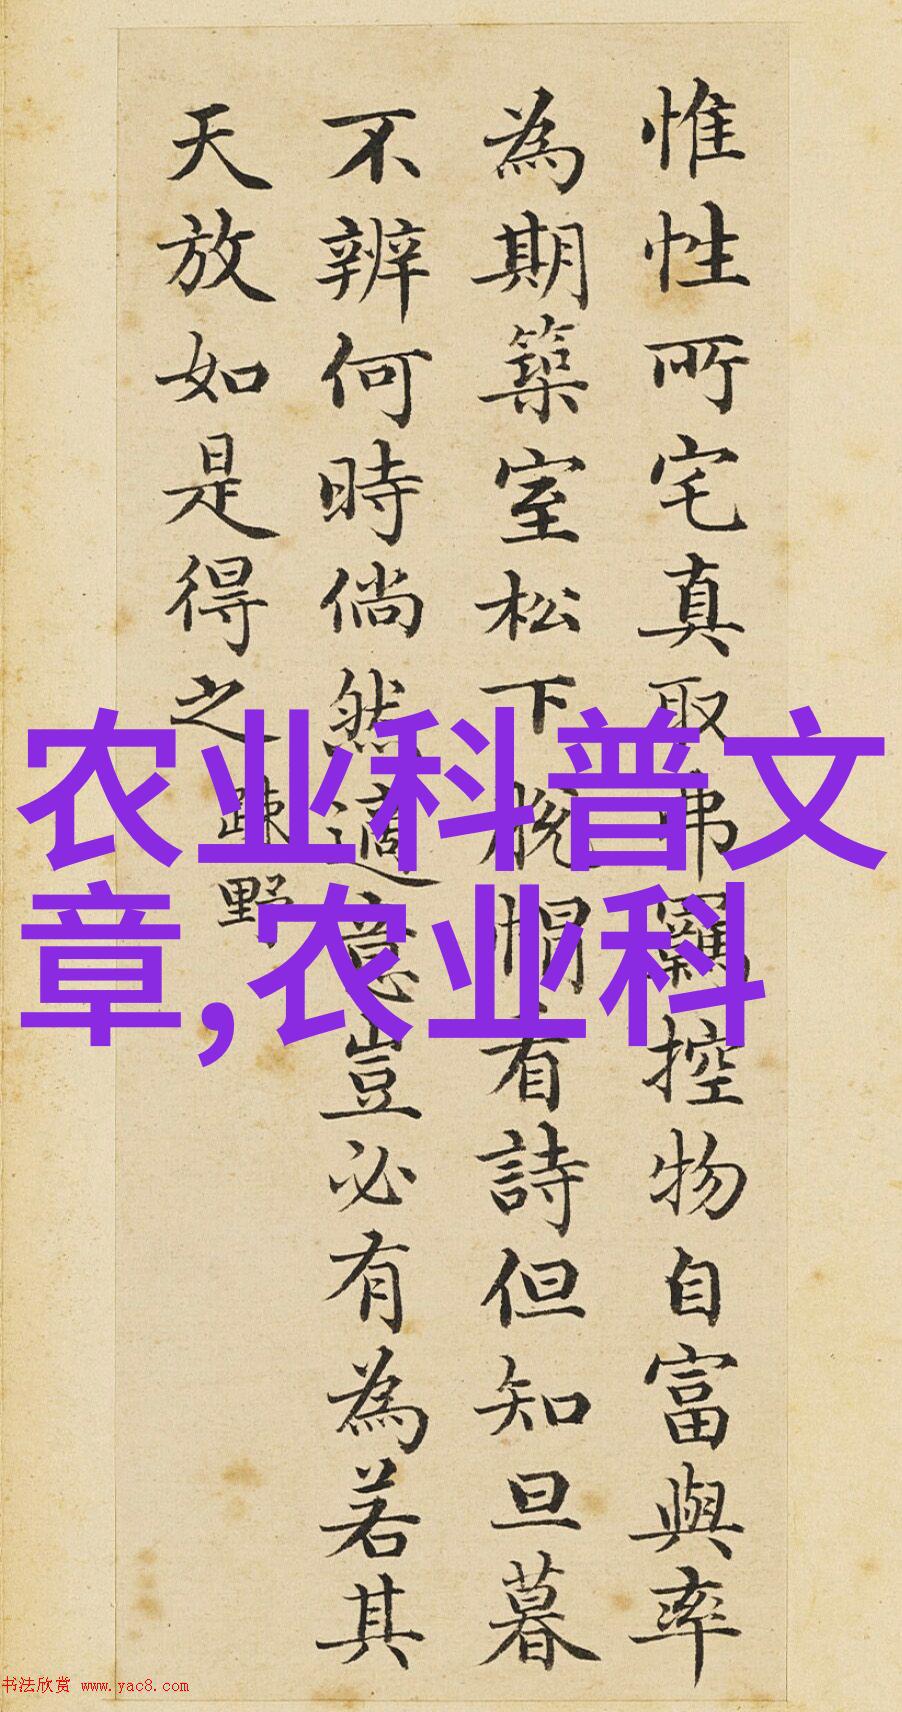 惟性所宅真取弗羈控物自富與率
為期築室松下脫帽看詩但知旦暮
不辨何時倘然適意豈必有為若其
天放如是得之 疎野
农业科普文
章,农业科
书法欣赏 www.yac8.com